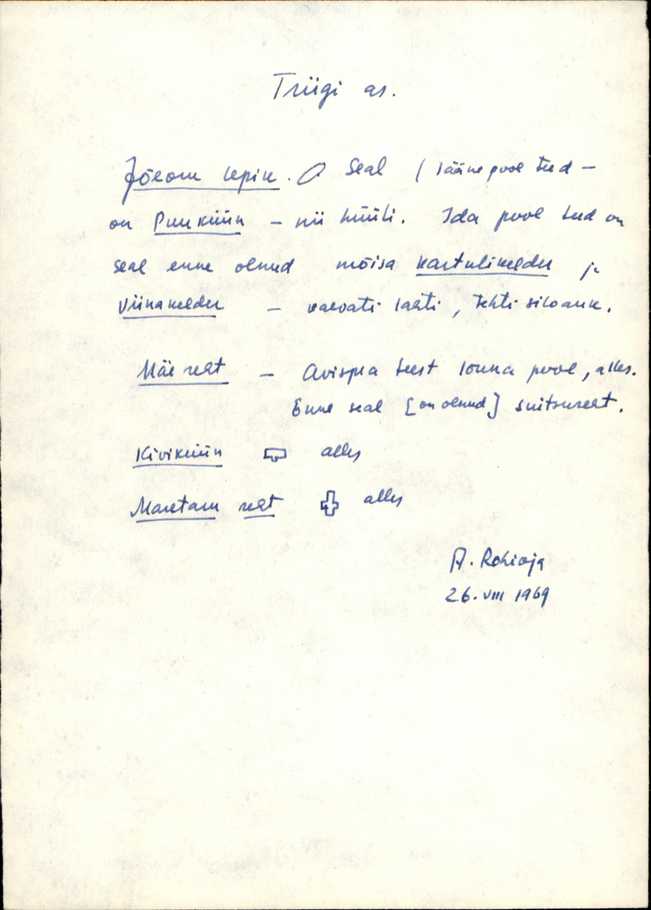 Triigi as.
Jõeoru lepik. Seal (lääne pool teed –
on Puuküün – nii hüüti. Ida pool teed on
seal enne olnud mõisa kartulikelder ja
viinakelder – kaevati lahti, tehti siloauk.
Mäe reht – Avispea teest lõuna pool, alles.
Enne seal [on olnud] suitsureht.
Kiviküün alles
reht alles
26. VIII 1969